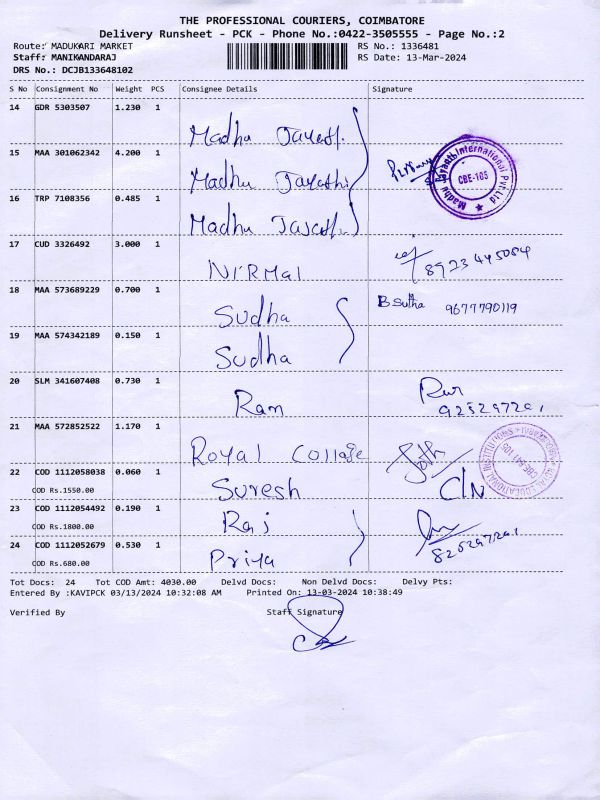 THE PROFESSIONAL COURIERS, COIMBATORE
Delivery Runsheet - PCK - Phone No.:0422-3505555 - Page No.:2
Route: MADUKARI MARKET RS No.: 1336481
Staff: MANIKANDARAJ RS Date: 13-Mar-2024
DRS No.: DCJB133648102
S No Consignment No Weight PCS Consignee Details Signature
14 GDR 5303507 1.230 1
Madhu
15 MAA 301062342 4.200 1
Madhu Jayathi
CBE-105
16 TRP 7108356 0.485 1
Madhu
17 CUD 3326492 3.000 1
NIRMAL
18 MAA 573689229 0.700 1
Sudha
B Sutha 9677790119
19 MAA 574342189 0.150 1
Sudha
20 SLM 341607408 0.730 1
Ram
21 MAA 572852522 1.170 1
Royal College
22 COD 1112058038 0.060 1
COD Rs.1550.00
Suresh
23 COD 1112054492 0.190 1
COD Rs.1800.00
Raj
24 COD 1112052679 0.530 1
COD Rs.680.00
Priya
Tot Docs: 24 Tot COD Amt: 4030.00 Delvd Docs: Non Delvd Docs: Delvy Pts:
Entered By :KAVIPCK 03/13/2024 10:32:08 AM Printed On: 13-03-2024 10:38:49
Verified By Staff Signature